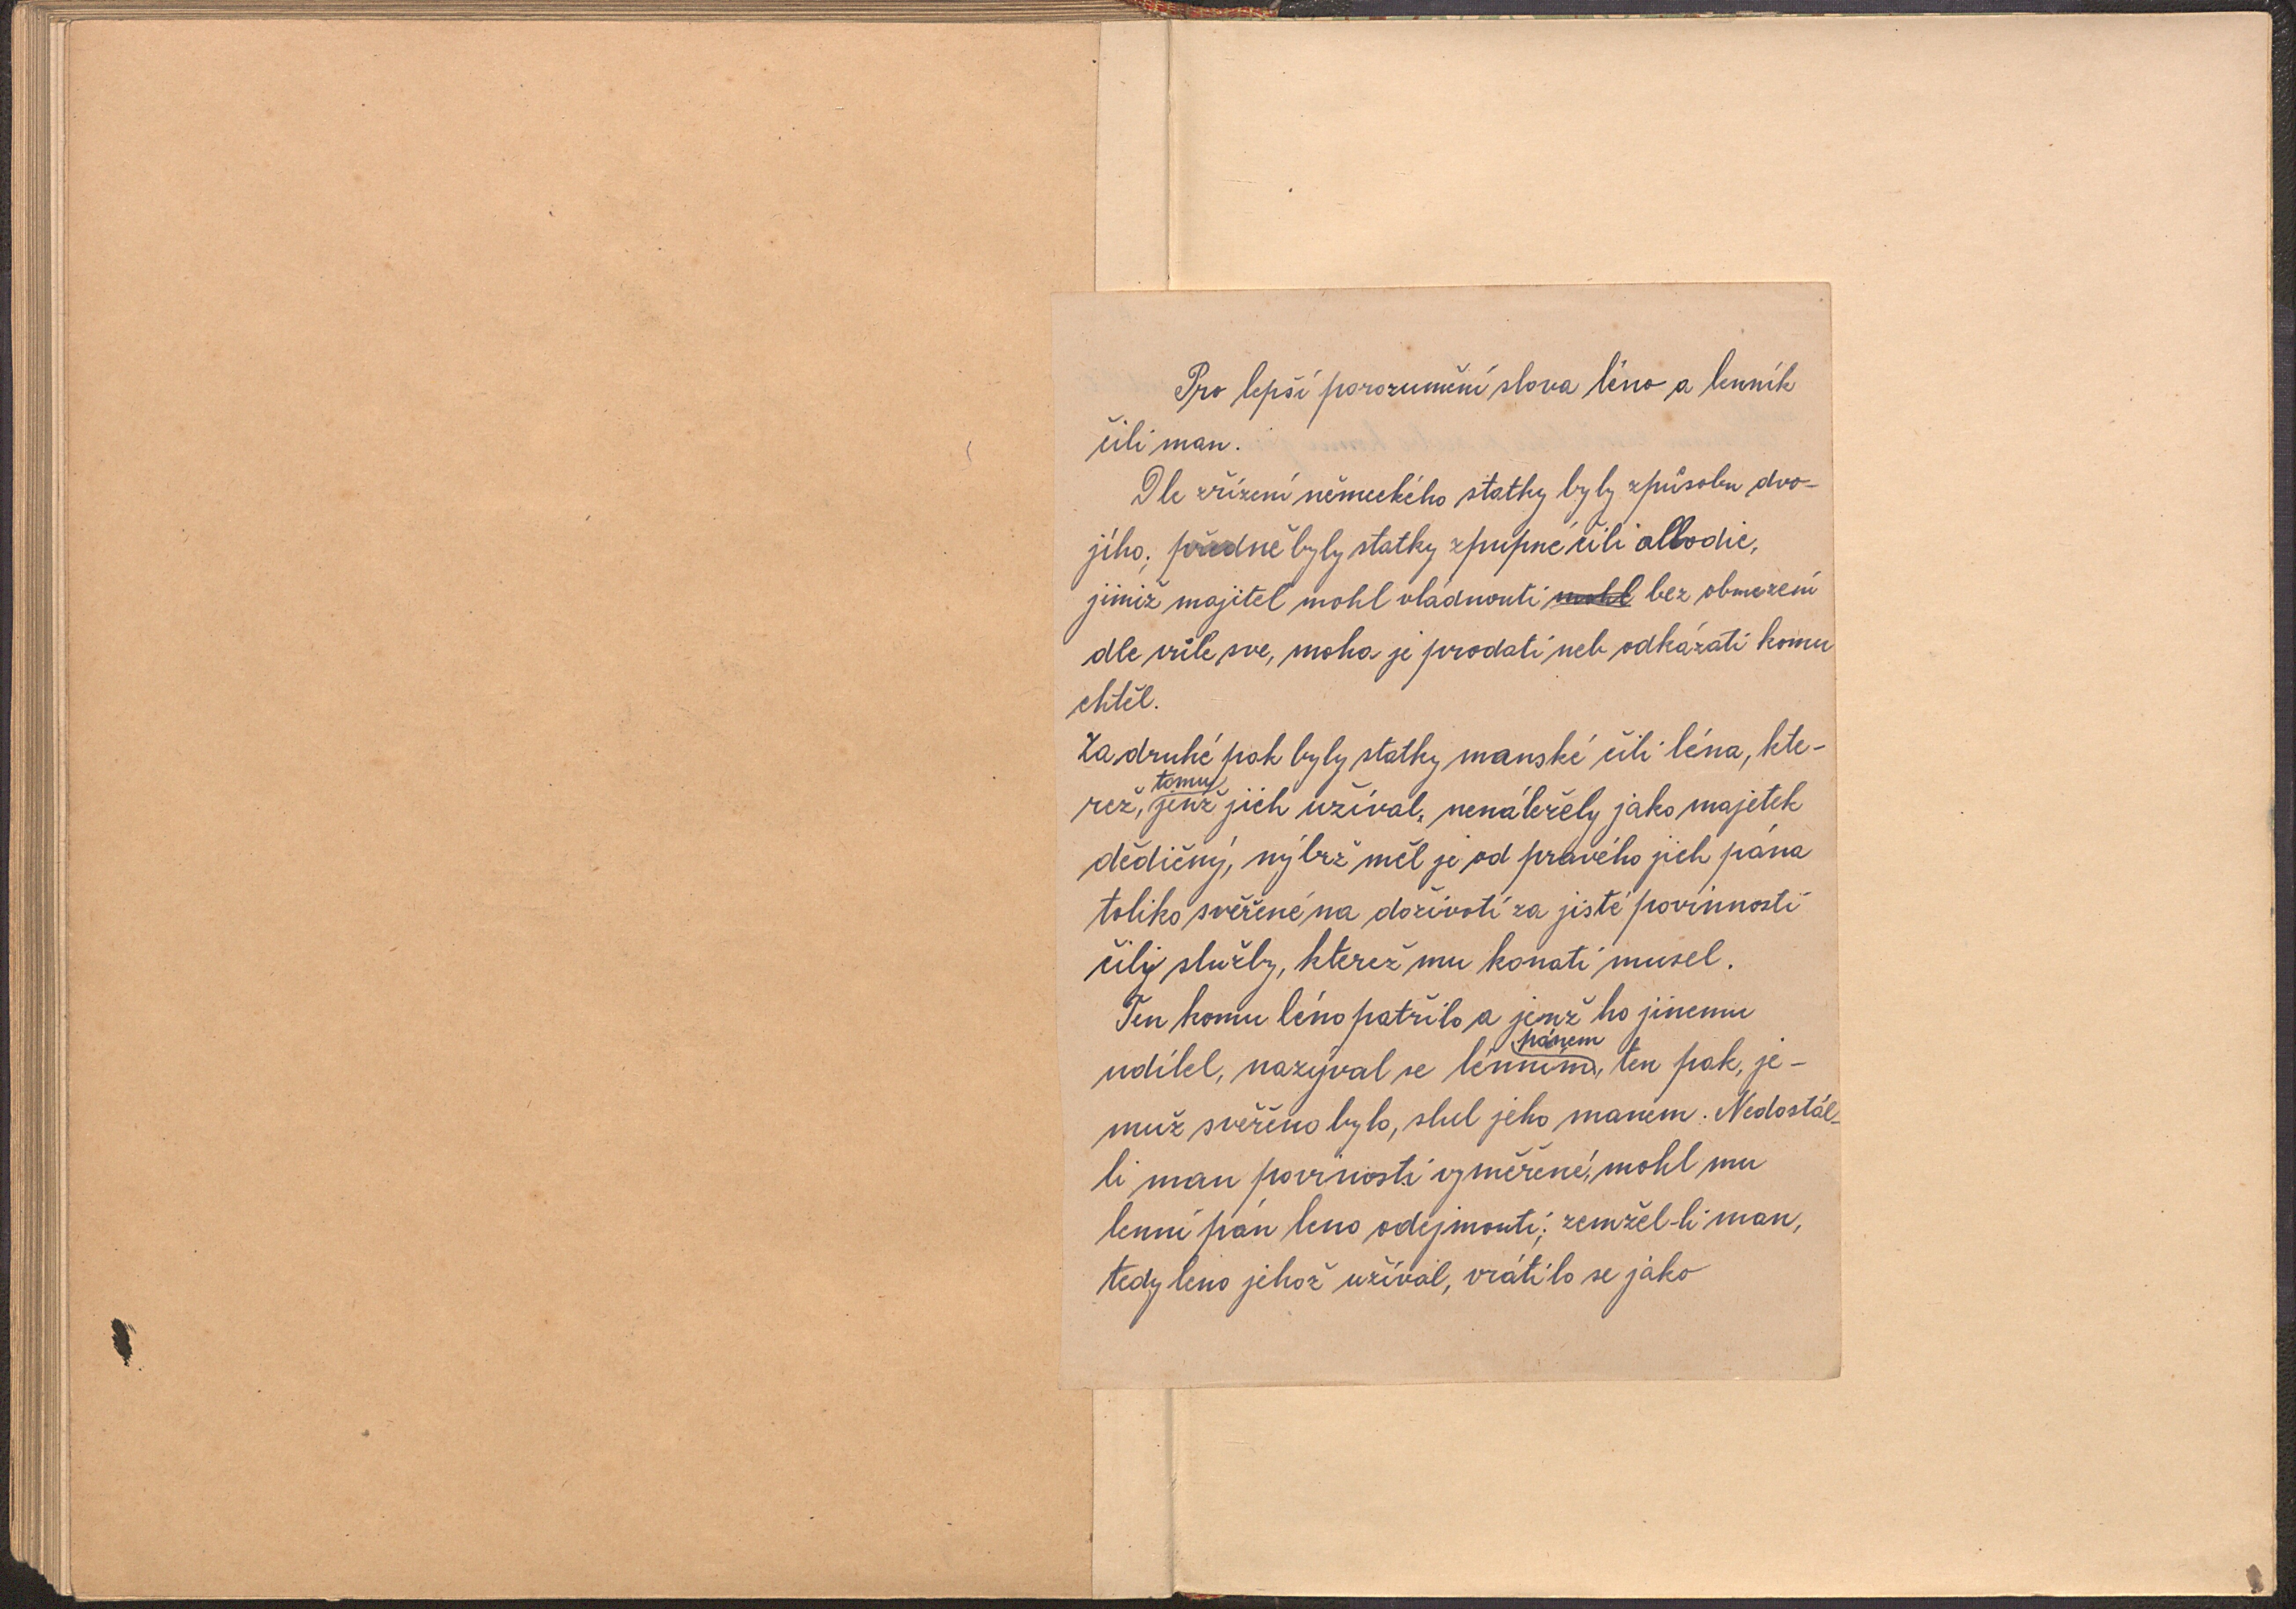 Pro lepší porozumění slova léno a lenník
čili man.
Dle zřízení německého statky byly způsobu dvo-
jího; předně byly statky zpupné čili allodie,
jimiž majitel mohl vládnouti mohl bez obmezení
dle vůle sve, moha je prodati neb odkázati komu
chtěl.
Za druhé pak byly statky manské čili léna, kte-
rež, tomu jenž jich užíval, nenáležely jako majetek
dědičný, nýbrž měl je od pravého jich pána
toliko svěřené na doživotí za jisté povinnosti
čili služby, kterež mu konati musel.
Ten komu léno patřilo a jenž ho jinemu
udílel, nazýval se lenním pánem, ten pak, je-
muž svěřeno bylo, slul jeho manem. Nedostál-
li man povinosti vyměřené, mohl mu
lenní pán leno odejmouti; zemřel-li man,
tedy leno jehož užíval, vrátilo se jako